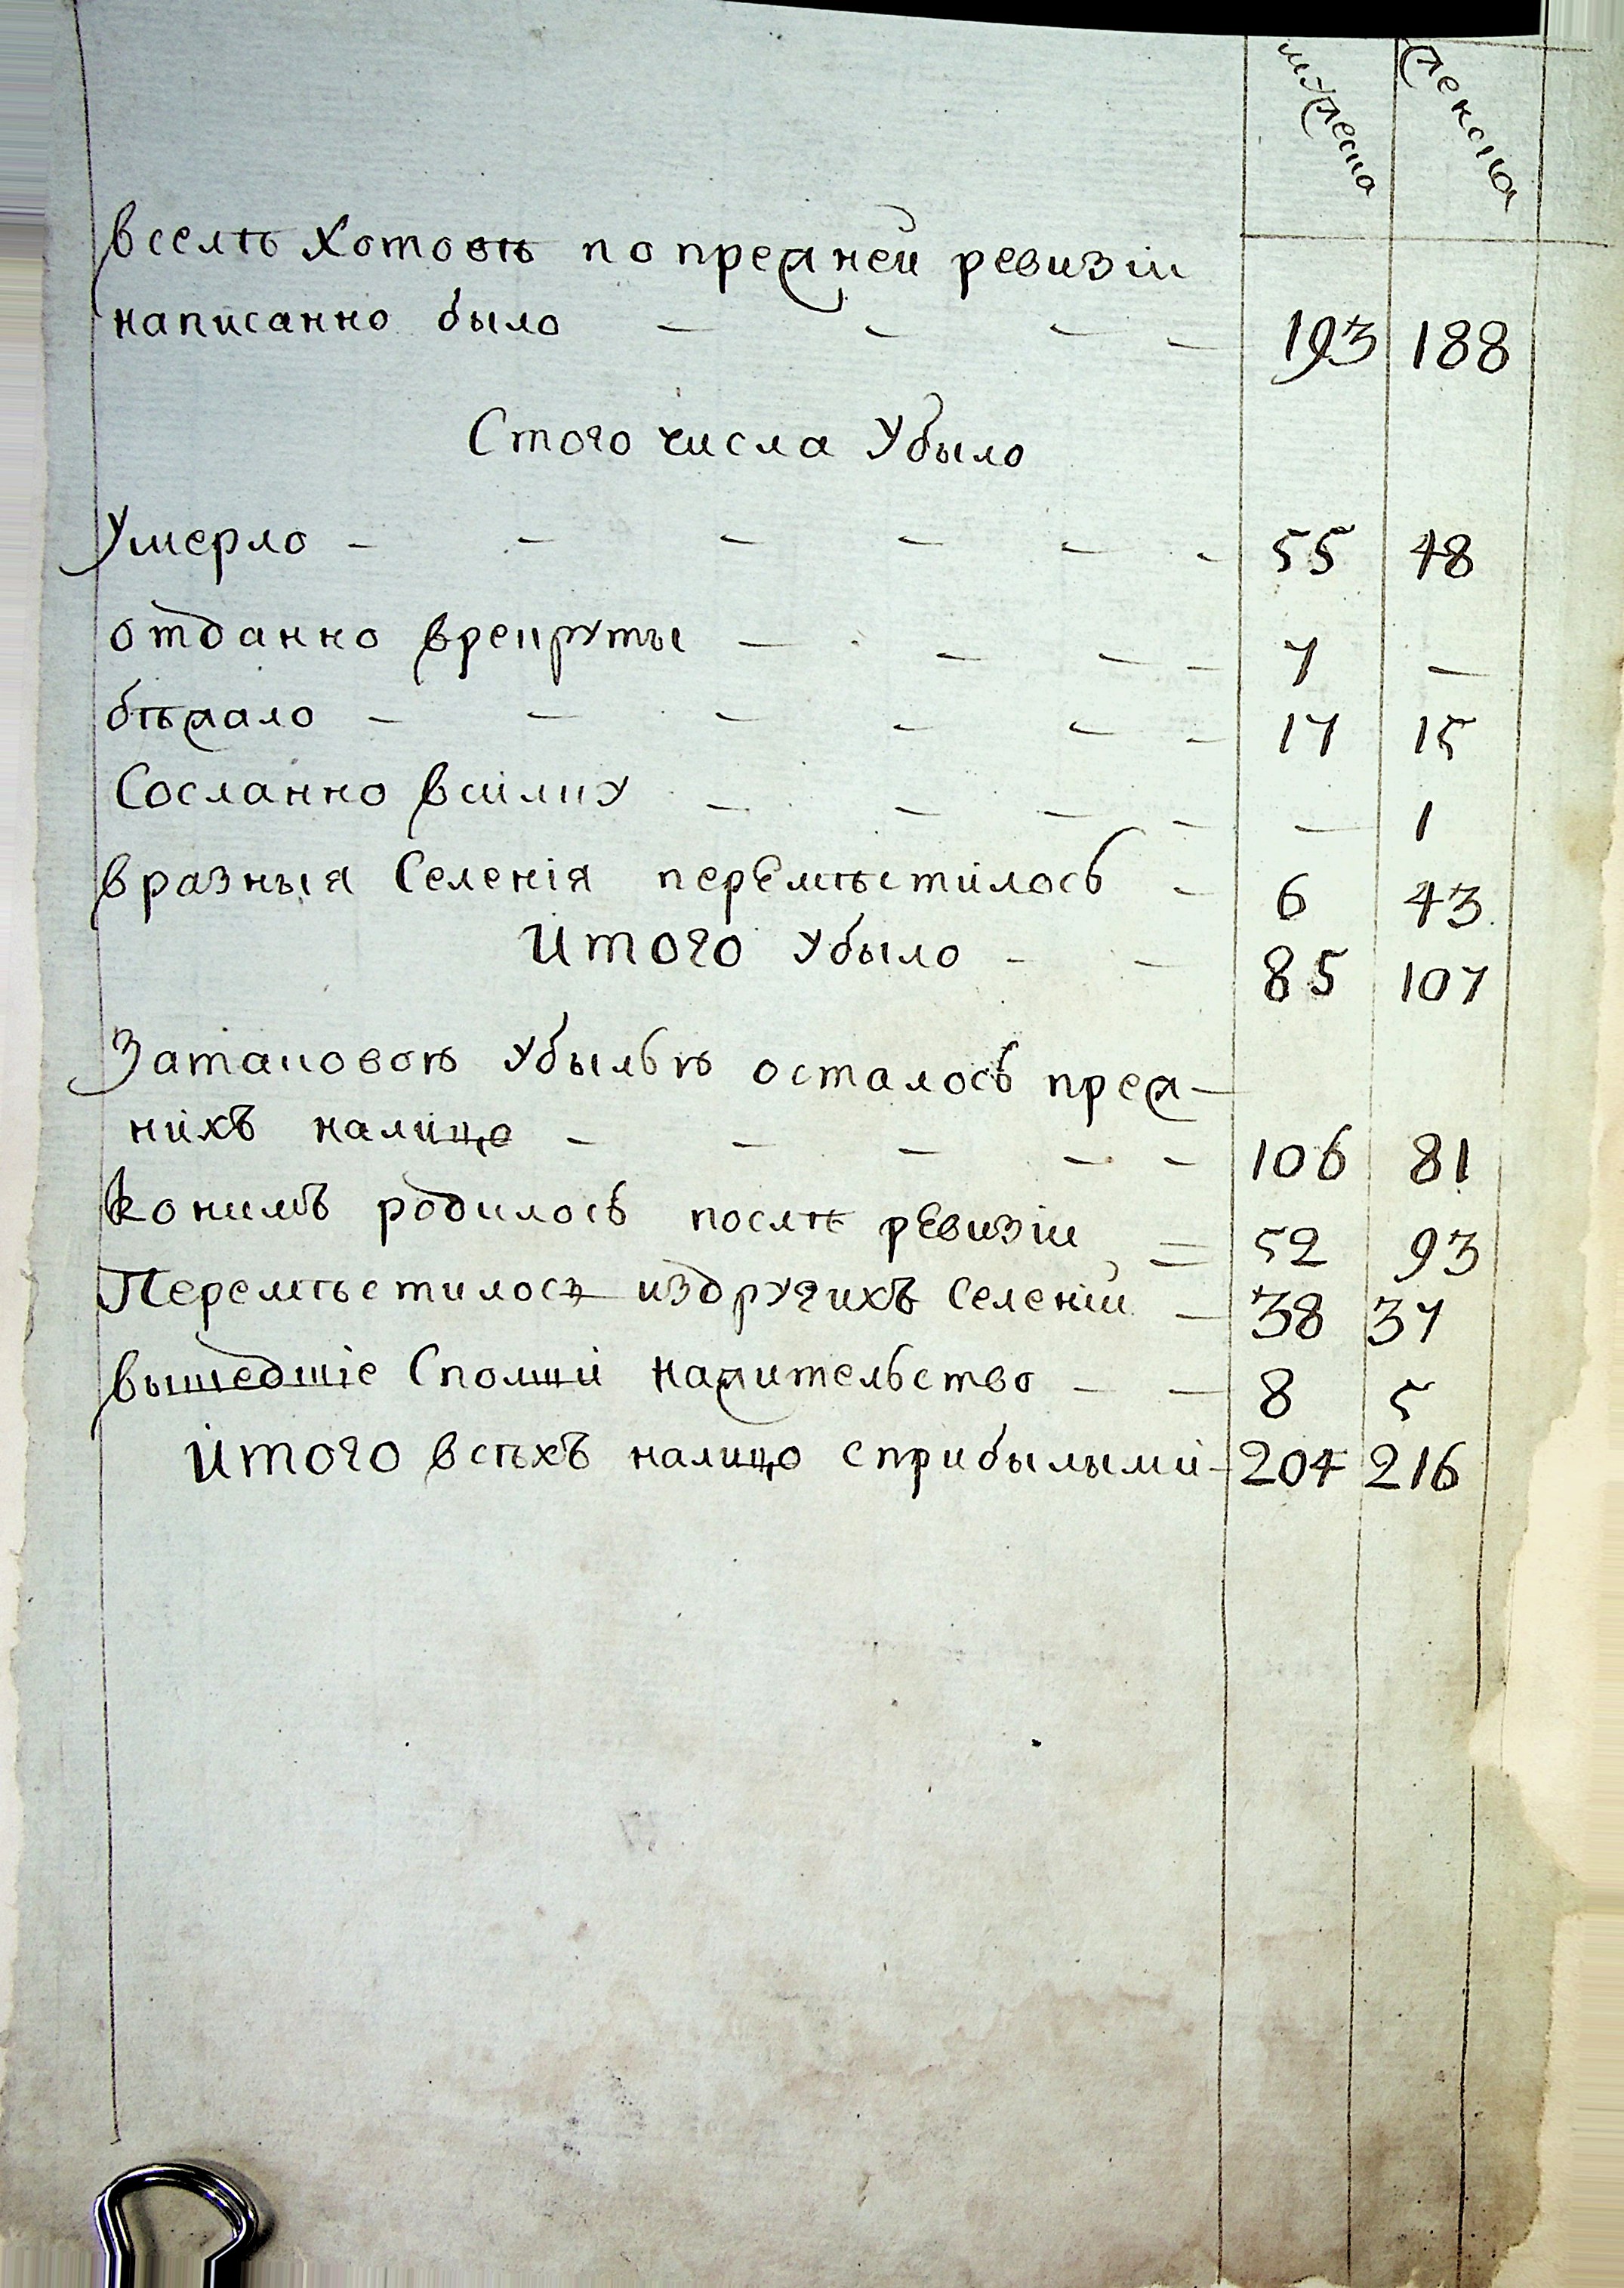 мужеска женска
вселѣ Хотовѣ по прежней ревизіи
написанно было — — — — 193 188
Стого числа Убыло
Умерло — — — — — — 55 48
отданно врекруты — — — — 7 —
бѣжало — — — — — — 17 15
Сосланно всилку — — — — — 1
вразныя Селенія перемѣстилось — 6 43
Итого Убыло — — 85 107
Затаковою Убылью осталось преж—
нихъ налицо — — — — — 106 81
конимъ родилось послѣ ревизіи = 52 93
Перемѣстилось издругихъ Селеній — 38 37
вышедшіе Сполши нажительство — — 8 5
Итого всѣхъ налицо сприбылыми — 204 216